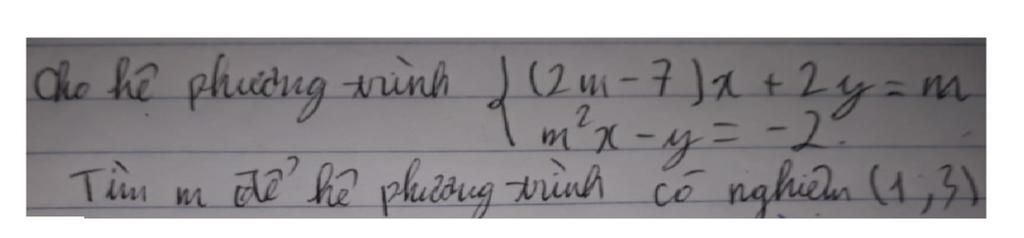 Cho hệ phương trình { (2m - 7)x + 2y = m
m²x - y = -2.
Tìm m để hệ phương trình có nghiệm (1;3)